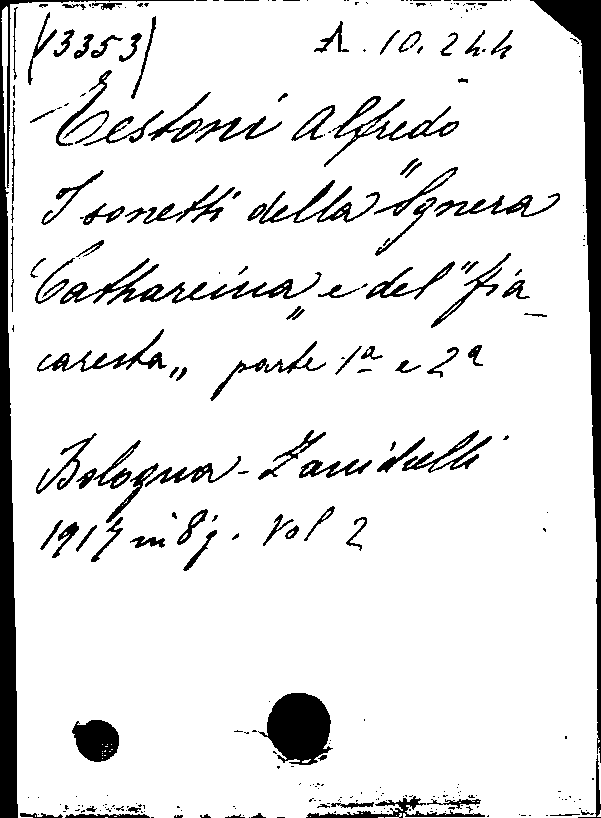 (13353) A. 10. 2 h.h
Testoni Alfredo
I sonetti della "Sgnera
Cathareina" e del "fia_
caresta" parte 1a e 2a
Bologna - Zanichelli
1917 in 8° g. Vol 2